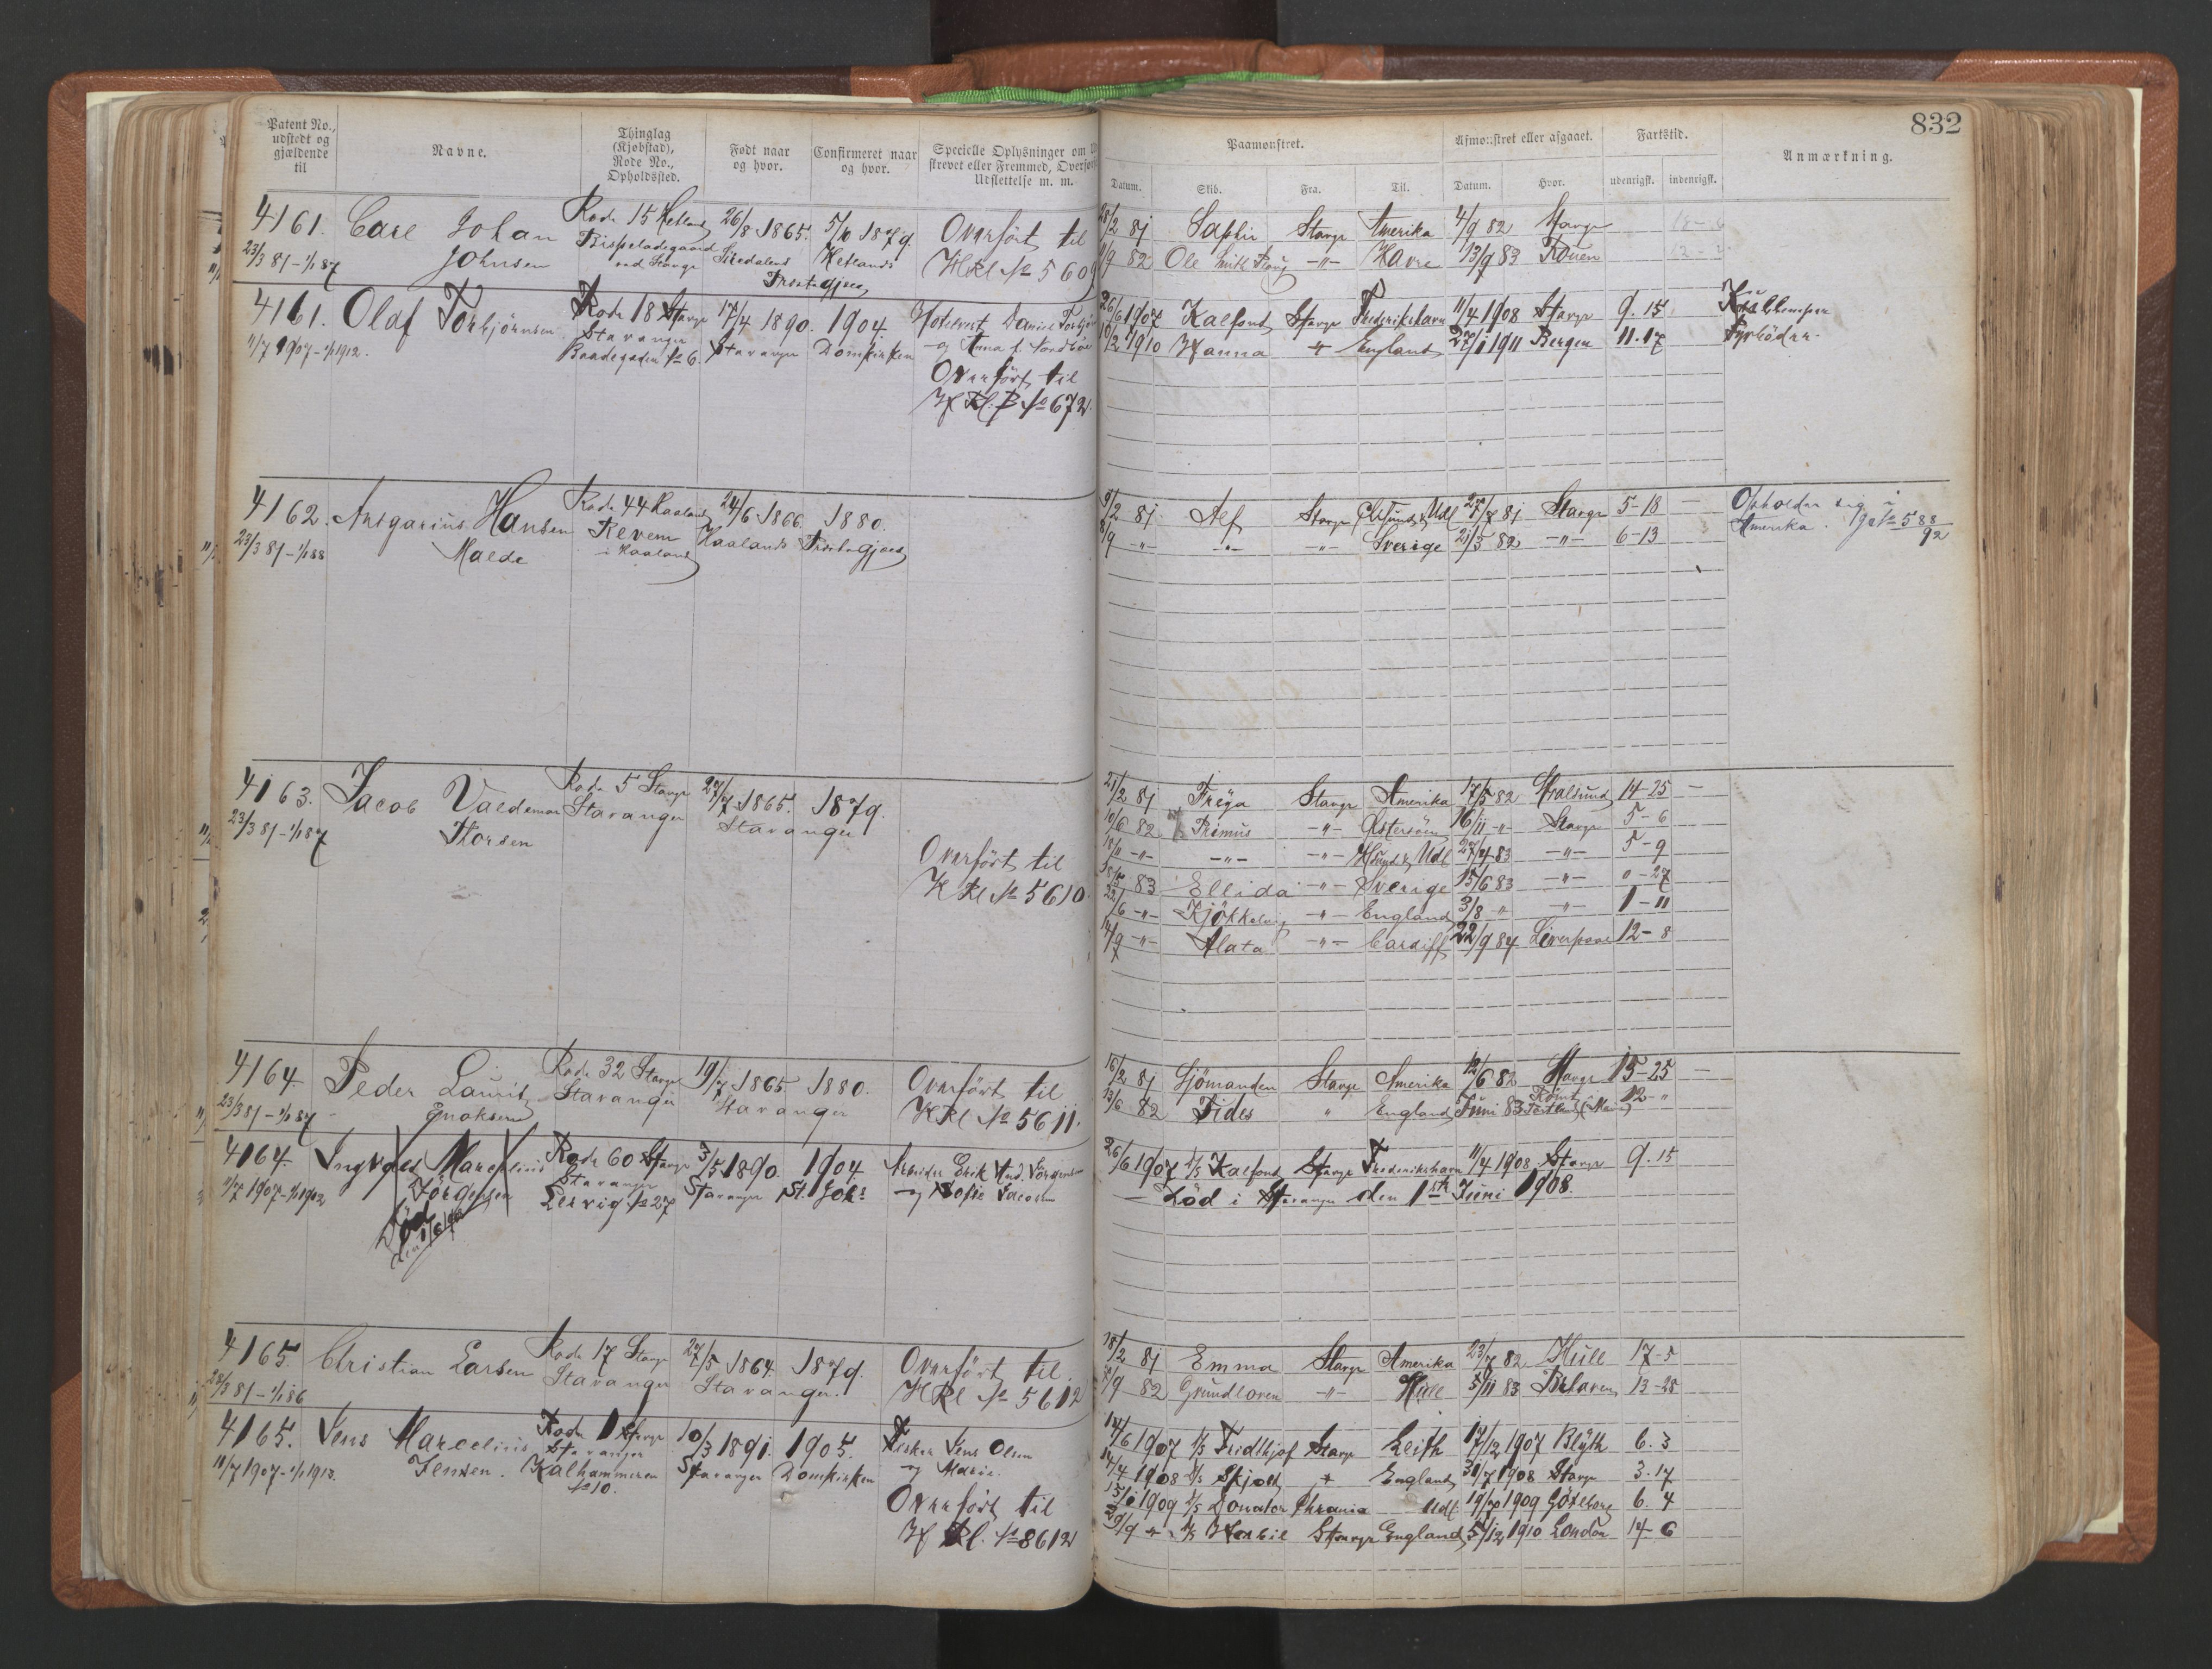 832
Patent No., udstedt og gjældende til
Navne.
Thinglag (Kjøbstad), Rode No., Opholdssted.
Født naar og hvor.
Confirmeret naar og hvor.
Specielle Oplysninger om
strevet eller Fremmed, Overfør
Udslettelse m. m.
Paamønstret.
Afmønstret eller afgaaet.
Fartstid.
Anmærkning.
Datum. Skib. Fra. Til. Datum. Hvor. udenrigsk. indenrigsk.
4161. Carl Johan Rode 15 Hetland 26/8 1865. 5/10 1879. Overført til
23/3 81 - 1/1 87 Johnsen Bispeladegaard Hetlands H Rl № 5609
ved Stavgr Præstegjæld
28/2 81 Saphir Stavgr Amerika 4/9 82 Stavgr
11/9 82 Ole Smith Ploug -"- Havre 13/9 83 Rouen
4161. Olaf Torbjörnsen Rode 18 Stavgr 17/4 1890. 1904. Daniel Torbjör
11/7 1907 - 1/1 1912. Stavanger Stavanger Domkirken og Anna f. Nordbö
Baadegaden № 6
Overført til
H Rl. B № 672.
26/6 1907 Kalfond Stavgr Frederikshavn 11/4 1908 Stavgr 9. 15 Kullemper
10/2 1910 Hanna " England 27/1 1911 Bergen 11. 17 Fyrböder.
4162. Ansgarius Hansen Rode 44 Haaland 24/6 1866. 1880.
23/3 81 - 1/1 88 Malde Revem Haalands Præstegjæld
i Haaland
9/2 81 Alf Stavgr 27/7 81 Stavgr 5-18 - Opholder sig i
8/9 -"- -"- -"- Sverige 21/5 82 -"- 6-13 Amerika. № 588/92
4163. Jacob Valdemar Rode 5 Stavgr 27/7 1865. 1879.
23/3 81 - 1/1 87 Thorsen Stavanger Stavanger
Overført til
H Rl № 5610
21/2 81 Freya Stavgr Amerika 17/5 82 Stralsund 14-25 -
10/6 82 Primus -"- Østersöen 16/11 -"- Stavgr 5-6
-"- -"- 27/4 83 -"- 5-9
83 Ellida -"- Sverige 15/6 83 -"- "-27
22/6 -"- Kjökkelvig -"- England 3/8 " -"- 1-11
14/9 -"- Alata -"- Cardiff 22/9 84 Liverpool 12-8
4164. Peder Laurits Rode 32 Stavgr 19/7 1865. 1880. Overført til
23/3 81 - 1/1 87 Enoksen Stavanger Stavanger H Rl № 5611.
16/2 81 Sjömanden Stavgr Amerika 12/6 82 Stavgr 15-25 -
13/6 82 Fides " England Juni 83 Römt Portland (Maine) 12-"
4164. Ingvald Marselius Rode 60 Stavgr 3/5 1890. 1904 Arbeider Erik And. Jörgensen
11/7 1907 - 1/1 1912 Jörgensen Stavanger Stavanger St. Joh: og Sofie Jacobsen
Leirvig № 27
Död
den 1/6 1908
26/6 1907 D/S Kalfond Stavgr Frederikshavn 11/4 1908 Stavgr 9. 15
- Död i Stavanger den 1ste Juni 1908.
4165. Christian Larsen Rode 17 Stavgr 27/5 1864. 1879. Overført til
23/3 81 - 1/1 86 Stavanger Stavanger. H Rl № 5612
18/2 81 Emma Stavgr Amerika 23/7 82 Hull 17-5
9/9 82 Grundloven -"- Hull 5/11 83 13-28
4165. Jens Marcelius Rode 1 Stavgr 10/3 1891. 1905. Fisker Jens Olsen
11/7 1907 - 1/1 1913. Jensen. Stavanger Stavanger Domkirken og Marie
Kalhammeren
№ 10.
Overført til
H Rl. № 8612
14/6 1907 D/S Fridthjof Stavgr Leith 17/12 1907 Blyth 6. 3
14/4 1908 D/S Skjold " England 31/7 1908 Stavgr 3. 17
15/1 1909 D/S Donator Chrania Udl. 19/7 1909 Göteborg 6. 4
29/9 " D/S Stavgr England 5/12 1910 London 14-6